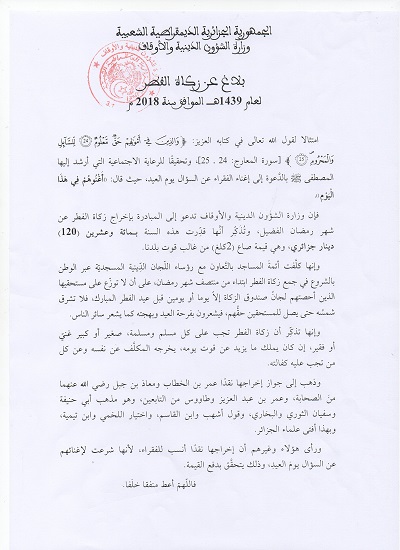 الجمهورية الجزائرية الديمقراطية الشعبية
وزارة الشؤون الدينية والأوقاف
بلاغ عن زكاة الفطر
لعام 1439هـ الموافق سنة 2018 م
امتثالا لقول الله تعالى في كتابه العزيز: ﴿ وَالَّذِينَ فِي أَمْوَالِهِمْ حَقٌّ مَعْلُومٌ (24) لِلسَّائِلِ
وَالْمَحْرُومِ (25) ﴾ [سورة المعارج: 24 ـ 25]، وتحقيقًا للرعاية الاجتماعية التي أرشد إليها
المصطفى ﷺ بالدّعوة إلى إغناء الفقراء عن السؤال يوم العيد، حيث قال: «أَغْنُوهُمْ فِي هَذَا
الْيَوْمِ»
فإن وزارة الشؤون الدينية والأوقاف تدعو إلى المبادرة بإخراج زكاة الفطر عن
شهر رمضان الفضيل، وتُذكّر أنّها قدّرت هذه السنة بمائة وعشرين (120)
دينار جزائري، وهي قيمة صاع (2كلغ) من غالب قوت بلدنا.
وإنها كلّفت أئمة المساجد بالتّعاون مع رؤساء اللّجان الدّينية المسجديّة عبر الوطن
بالشروع في جمع زكاة الفطر ابتداء من منتصف شهر رمضان، على أن لا توزّع على مستحقيها
الذين أحصتهم لجانُ صندوق الزكاة إلاّ يوما أو يومين قبل عيد الفطر المبارك، فلا تشرق
شمسُه حتى يصل للمستحقين حقُّهم، فيشعرون بفرحة العيد وبهجته كما يشعر سائر الناس.
وإنها تذكّر أن زكاة الفطر تجب على كل مسلم ومسلمة، صغير أو كبير غني
أو فقير، إن كان يملك ما يزيد عن قوت يومه، يخرجه المكلّف عن نفسه وعن كل
من تجب عليه كفالته.
وذهب إلى جواز إخراجها نقدًا عمر بن الخطاب ومعاذ بن جبل رضي الله عنهما
من الصحابة، وعمر بن عبد العزيز وطاووس من التابعين، وهو مذهب أبي حنيفة
وسفيان الثوري والبخاري، وقول أشهب وابن القاسم، واختيار اللخمي وابن تيمية،
وبهذا أفتى علماء الجزائر.
ورأى هؤلاء وغيرهم أن إخراجها نقدًا أنسب للفقراء، لأنها شرعت لإغنائهم
عن السؤال يومَ العيد، وذلك يتحقّق بدفع القيمة.
فاللّهمّ أعط منفقا خلفا.